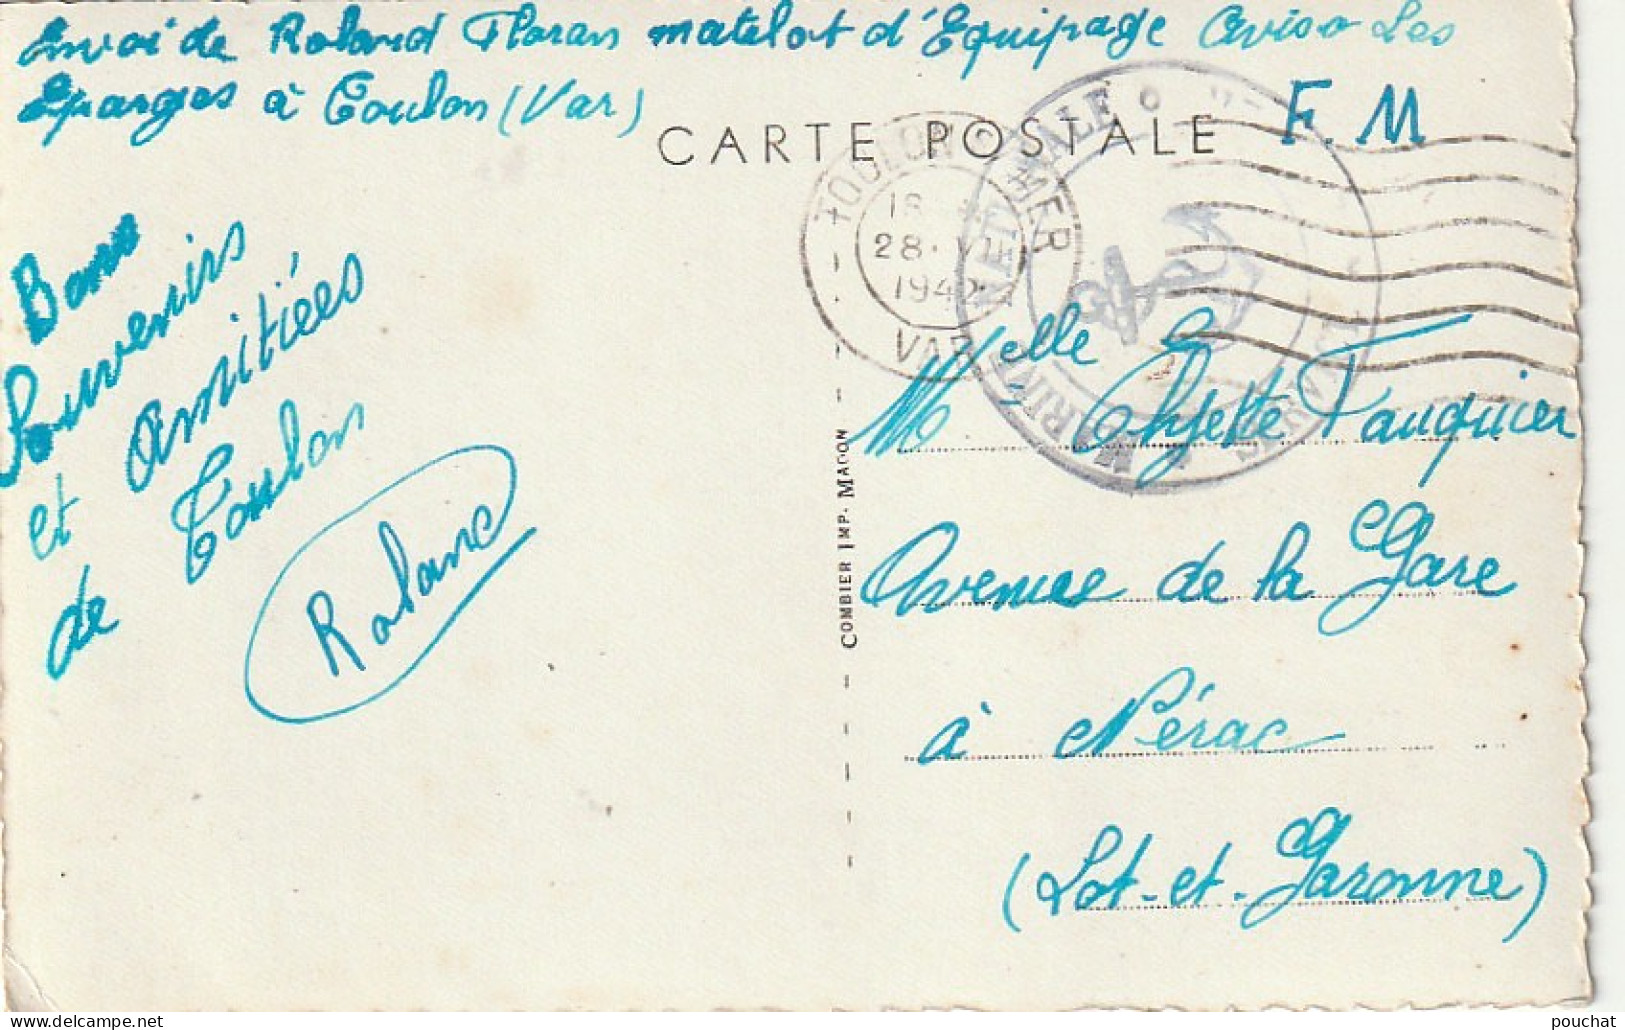 Envoi de Roland Floran matelot d'Equipage Aviso Les
Eparges à Toulon (Var)
F.M
CARTE POSTALE
TOULON
MER
28. VII
1942
VAR
Bons
Souvenirs
et Amitiées
de Toulon
Roland
COMBIER IMP. MACON
Melle Fauquier
Avenue de la Gare
à Nérac
(Lot-et-Garonne)
pouchat